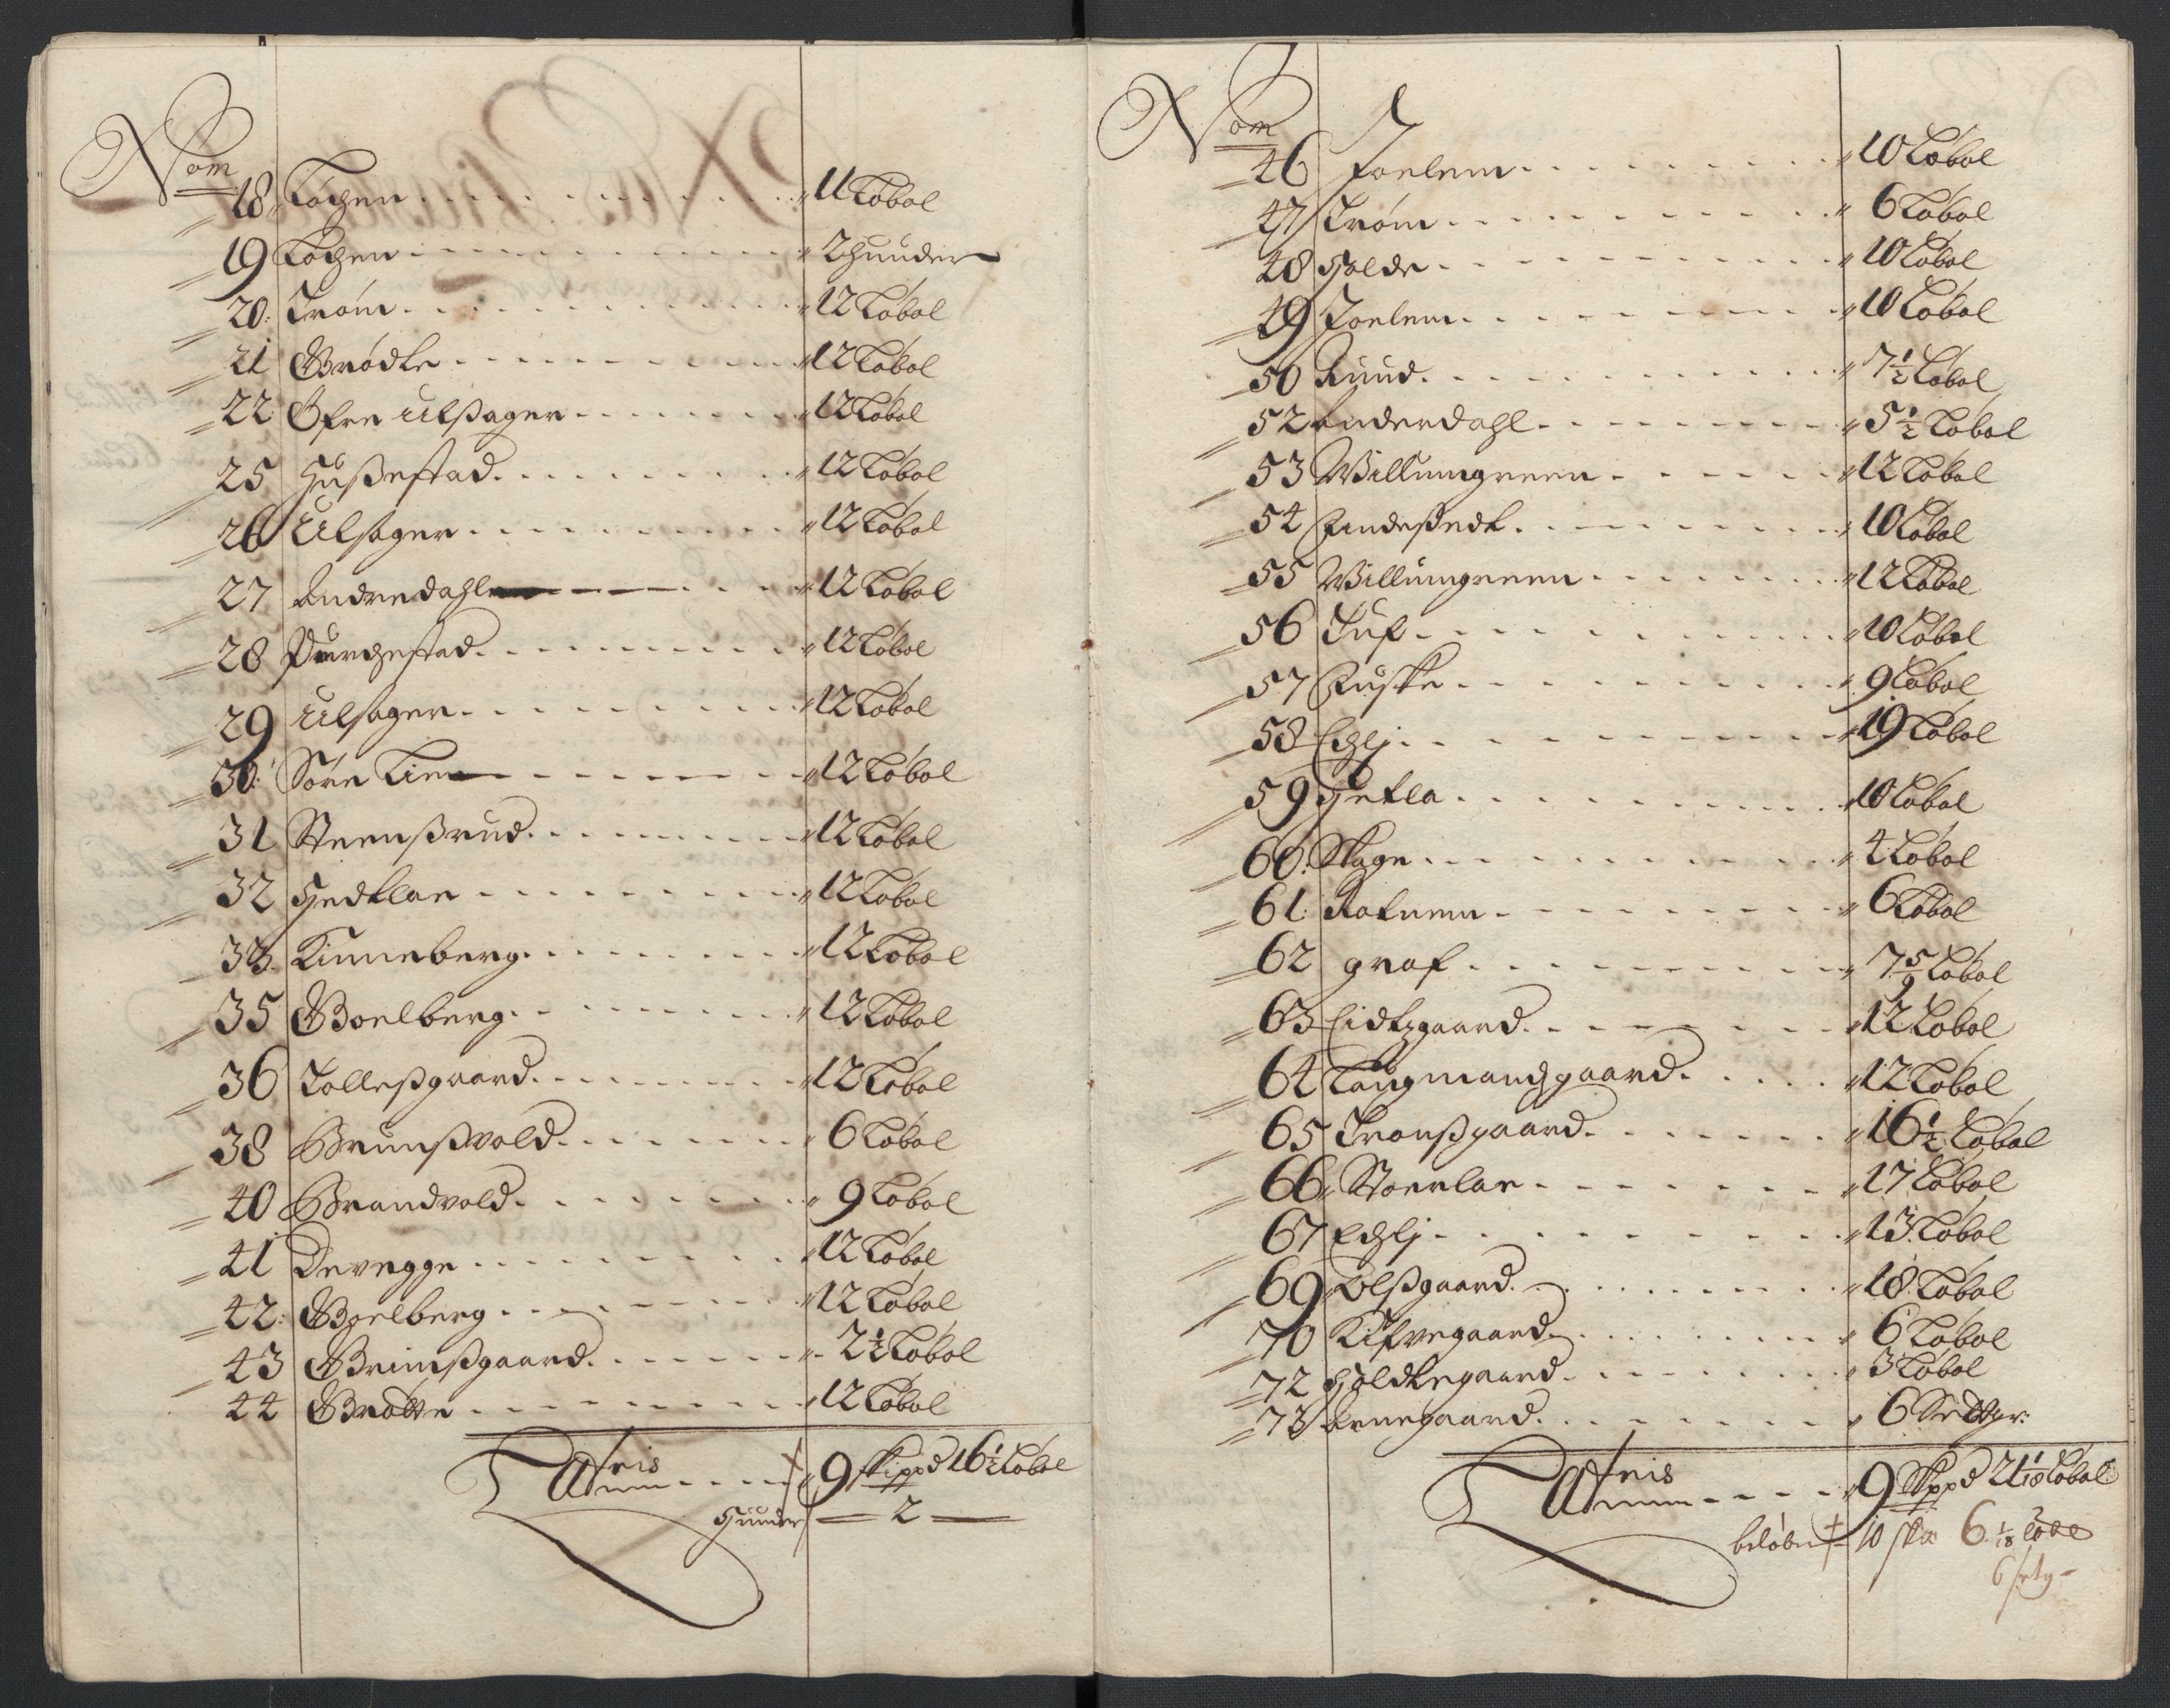 Nom
18 Løchen 11 Løbol
19 Løchen 2 huuder
20: Trøm 12 Løbol
21 Brødke 12 Løbol
22: Øfre Ulßager 12 Løbol
25 Hußestad 12 Løbol
26 Ulsager 12 Løbol
27 Andredahl 12 Løbol
28 12 Løbol
29 Ulsager 12 Løbol
30: Søre Lien 12 Løbol
31 Steenßrud 12 Løbol
32 Hedklae 12 Løbol
33 Kinneberg 12 Løbol
35 Boelberg 12 Løbol
36 Tolleßgaard 12 Løbol
38 Brunßvold 6 Løbol
40 Brandvold 9 Løbol
41 Devegge 12 Løbol
42: Boelberg 12 Løbol
43 Brimßgaard 2 1/2 Løbol
44 Brøtte 12 Løbol
9 skippd 16 1/2 Løbol
Huuder 2
Nom
46 Joelem 10 Løbol
47 Trøm 6 Løbol
48 Holde 10 Løbol
49 Joelem 10 Løbol
50 Ruud 7 1/2 Løbol
52 Anderdahl 5 1/2 Løbol
53 Willumgreen 12 Løbol
54 Findeßedt 10 Løbol
55 Willumgreen 12 Løbol
56 Tuf 10 Løbol
57 Fuske 9 Løbol
58 Echlj 19 Løbol
59 Hekla 10 Løbol
60: Hage 4 Løbol
61: Rotnem 6 Løbol
62 graf 7 5/9 Løbol
63 Eidtzgaard 12 Løbol
64 Laugmandzgaard 12 Løbol
65 Tronßgaard 16 1/2 Løbol
66 Stoerlae 17 Løbol
67 Echlj 13 Løbol
69 Olßgaard 18 Løbol
70 Kifvegaard 6 Løbol
72 Holdkegaard 3 Løbol
73 Arnegaard 6 Settgr:
9 Skppd 21 1/18 Løbol
beløber 10 6 1/18 Løbl
6 setg